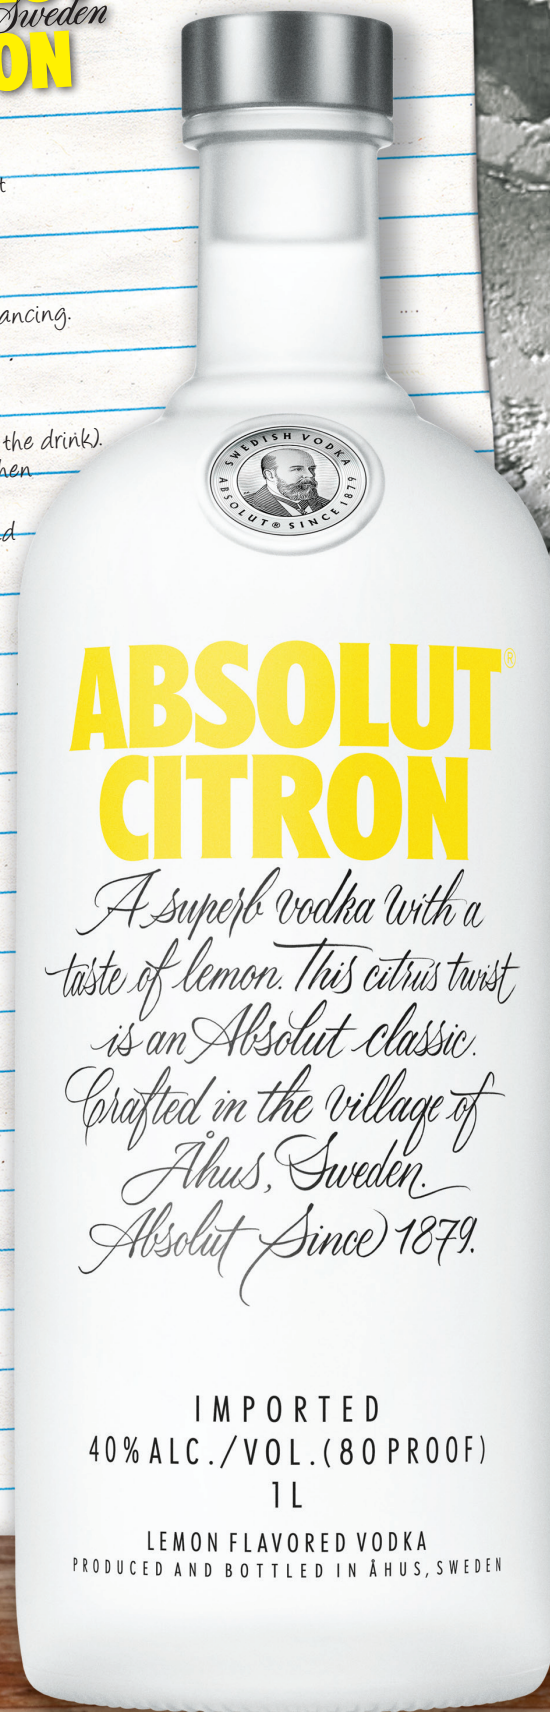 Sweden
ON
t
ancing.
the drink).
hen
d
SWEDISH VODKA
ABSOLUT® SINCE 1879
ABSOLUT®
CITRON
A superb vodka with a
taste of lemon. This citrus twist
is an Absolut classic.
Crafted in the village of
Åhus, Sweden.
Absolut Since 1879.
IMPORTED
40% ALC./VOL. (80 PROOF)
1L
LEMON FLAVORED VODKA
PRODUCED AND BOTTLED IN ÅHUS, SWEDEN